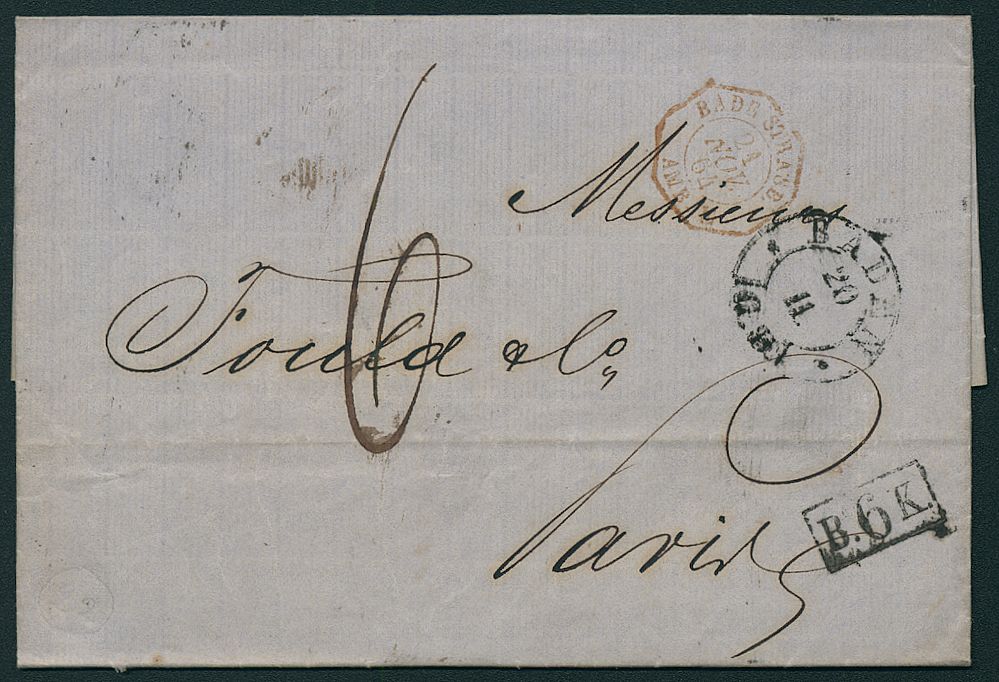 BADE STRASB
21
NOV
61
AMB
Messieurs
BADEN
20
11.
Fould & Co,
6
Paris
B. 6 K.